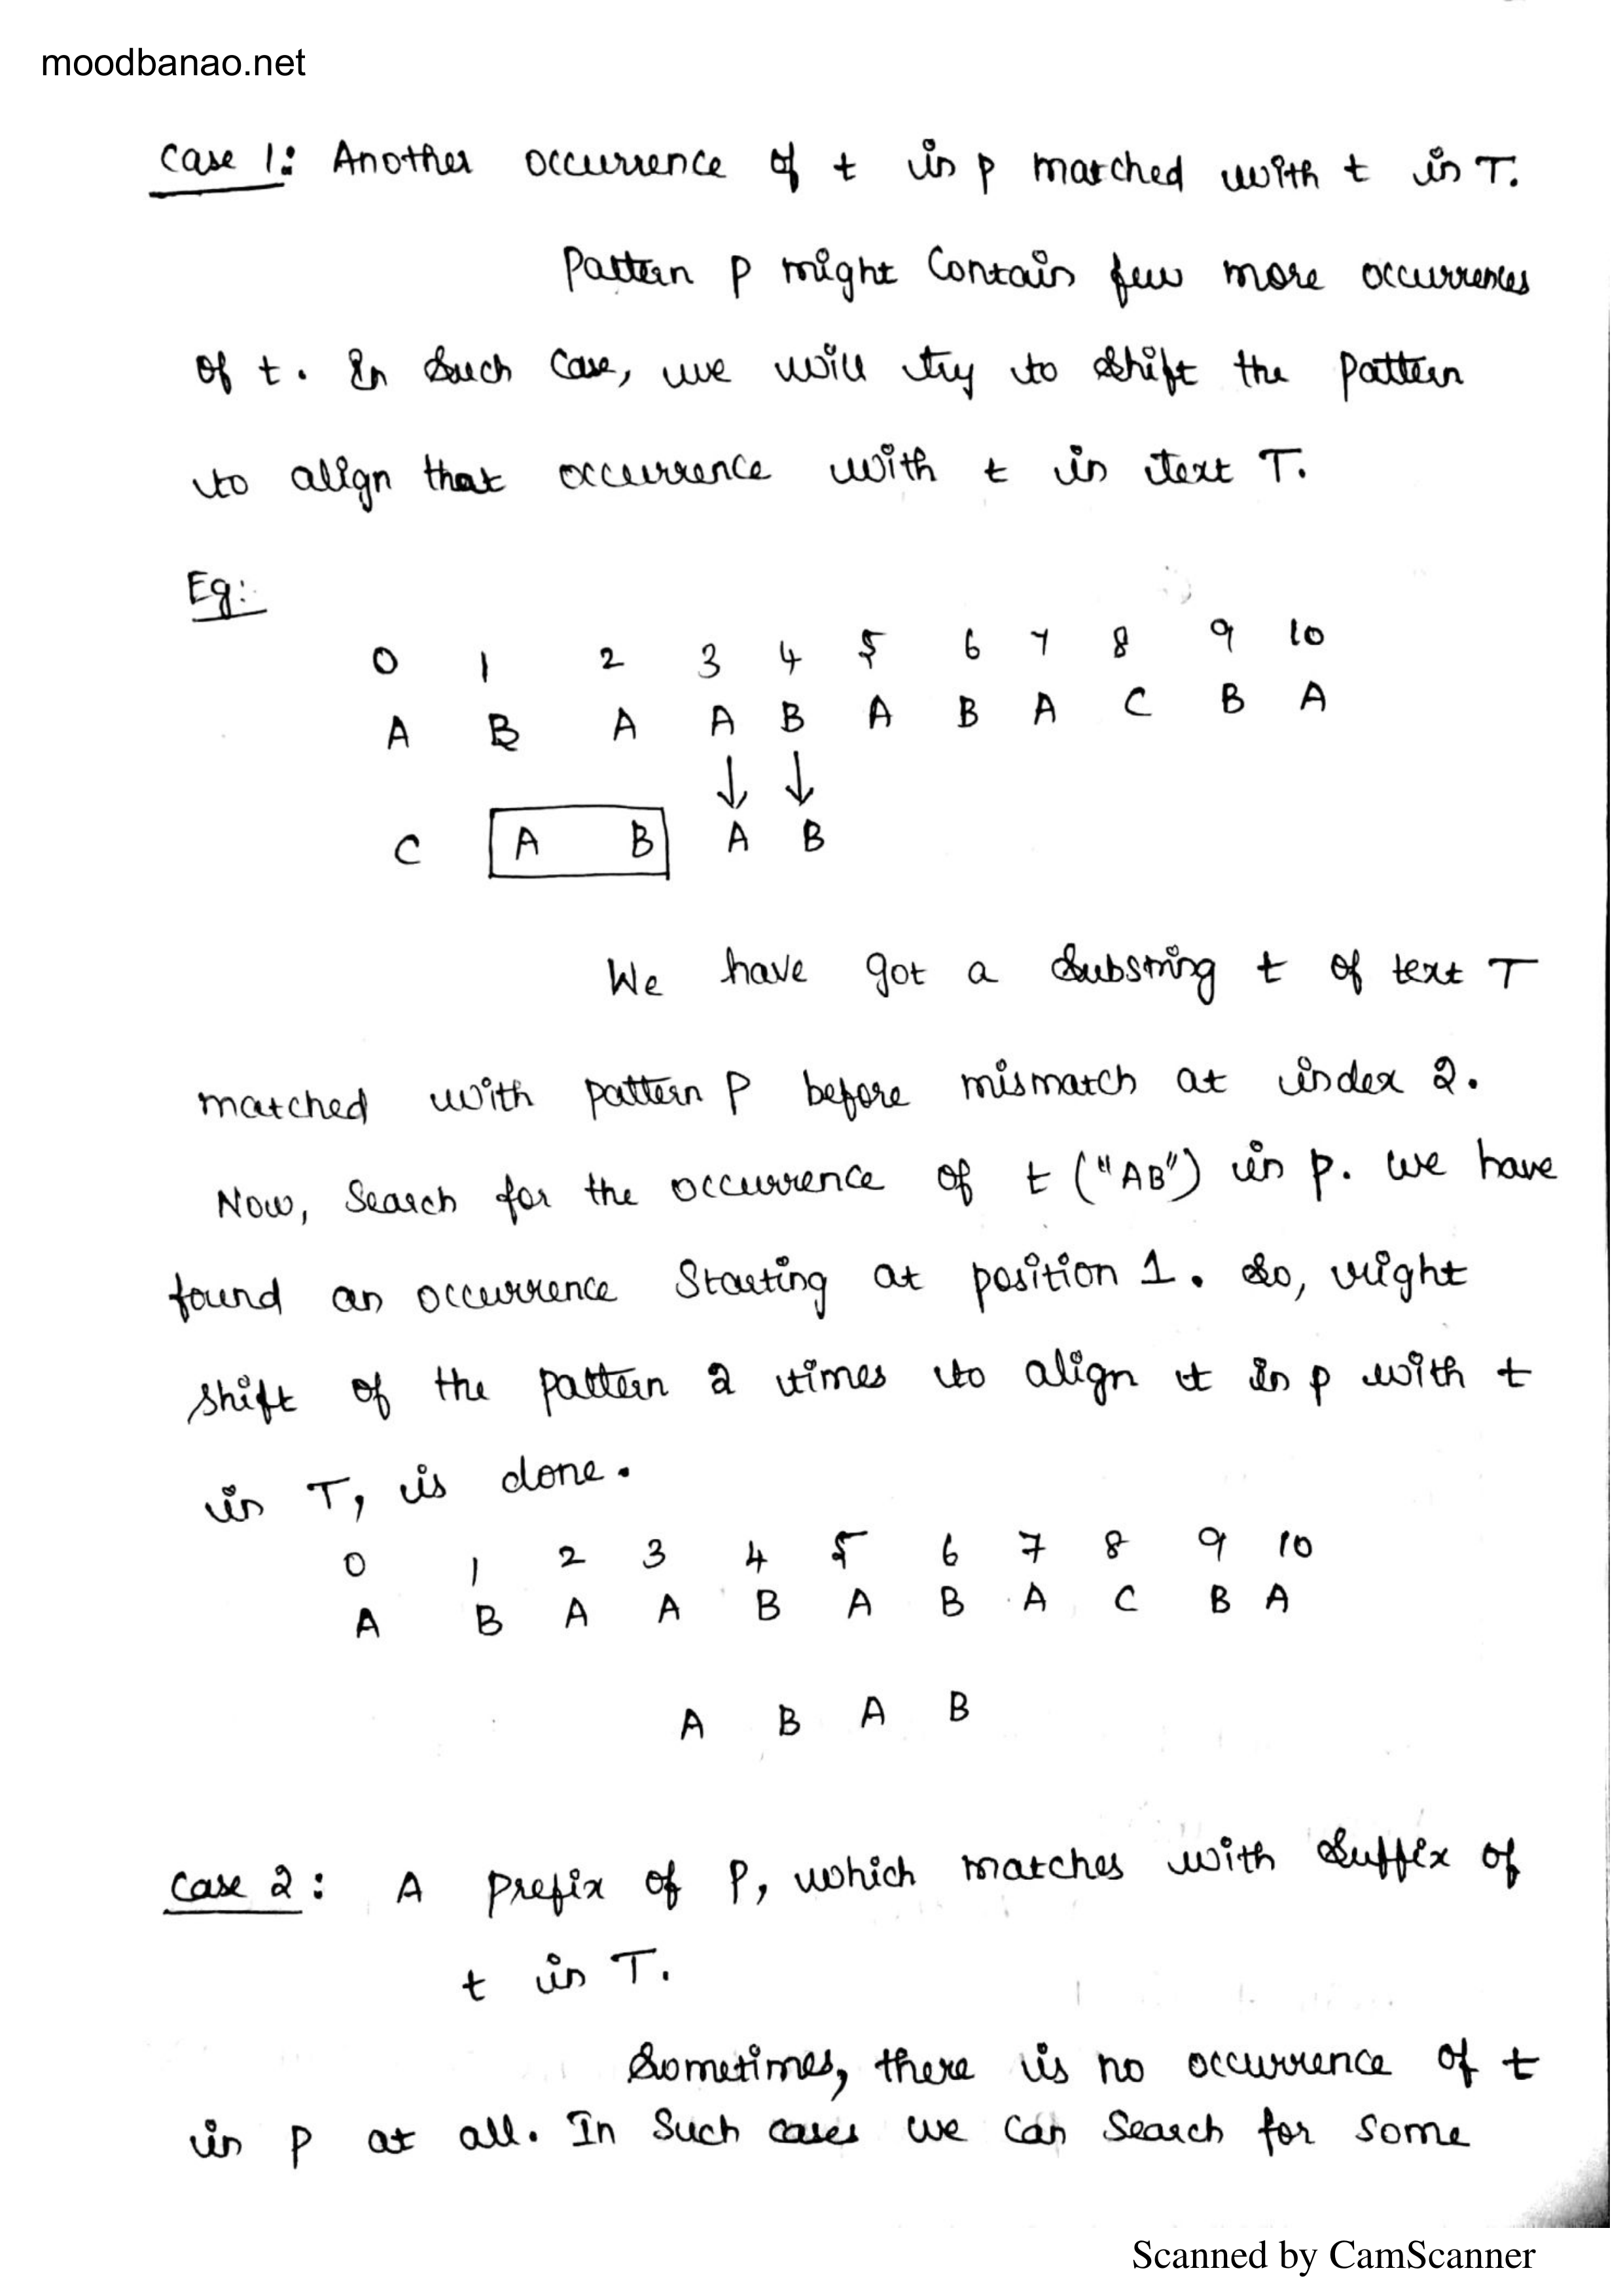 moodbanao.net
Case 1: Another occurrence of t in p matched with t in T.
Pattern P might Contain few more occurrences
of t. In Such Case, we will try to Shift the Pattern
to align that occurrence with t in text T.
Eg:
0 1 2 3 4 5 6 7 8 9 10
A B A A B A B A C B A
↓ ↓
C A B A B
We have got a Substring t of text T
matched with pattern P before mismatch at index 2.
Now, Search for the occurrence of t ("AB") in p. We have
found an occurrence Starting at position 1. So, right
shift of the pattern 2 times to align t in p with t
in T, is done.
0 1 2 3 4 5 6 7 8 9 10
A B A A B A B A C B A
A B A B
Case 2: A Prefix of P, which matches with Suffix of
t in T.
Sometimes, there is no occurrence of t
in P at all. In Such cases we can Search for some
Scanned by CamScanner